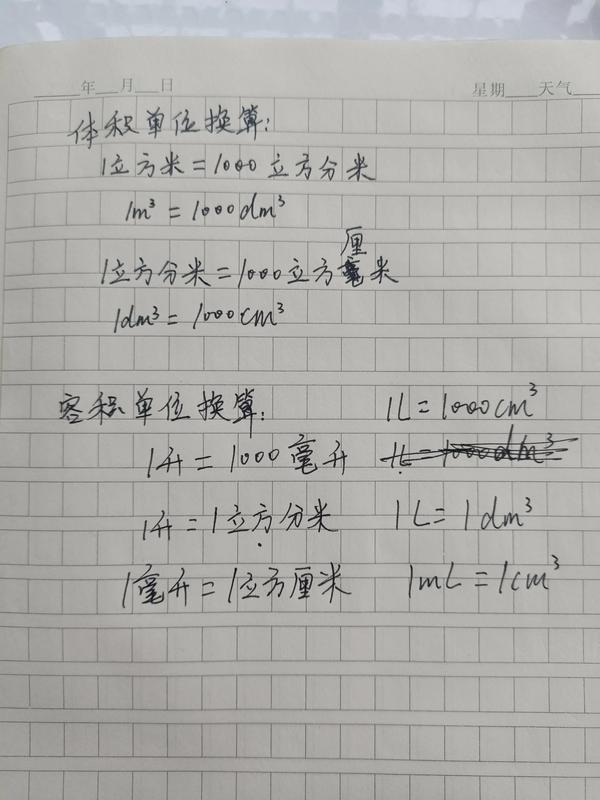 年 月 日 星期 天气
体积单位换算:
1立方米=1000立方分米
1m³=1000dm³
1立方分米=1000立方厘米
1dm³=1000cm³
容积单位换算: 1L=1000cm³
1升=1000毫升
1升=1立方分米 1L=1dm³
1毫升=1立方厘米 1mL=1cm³